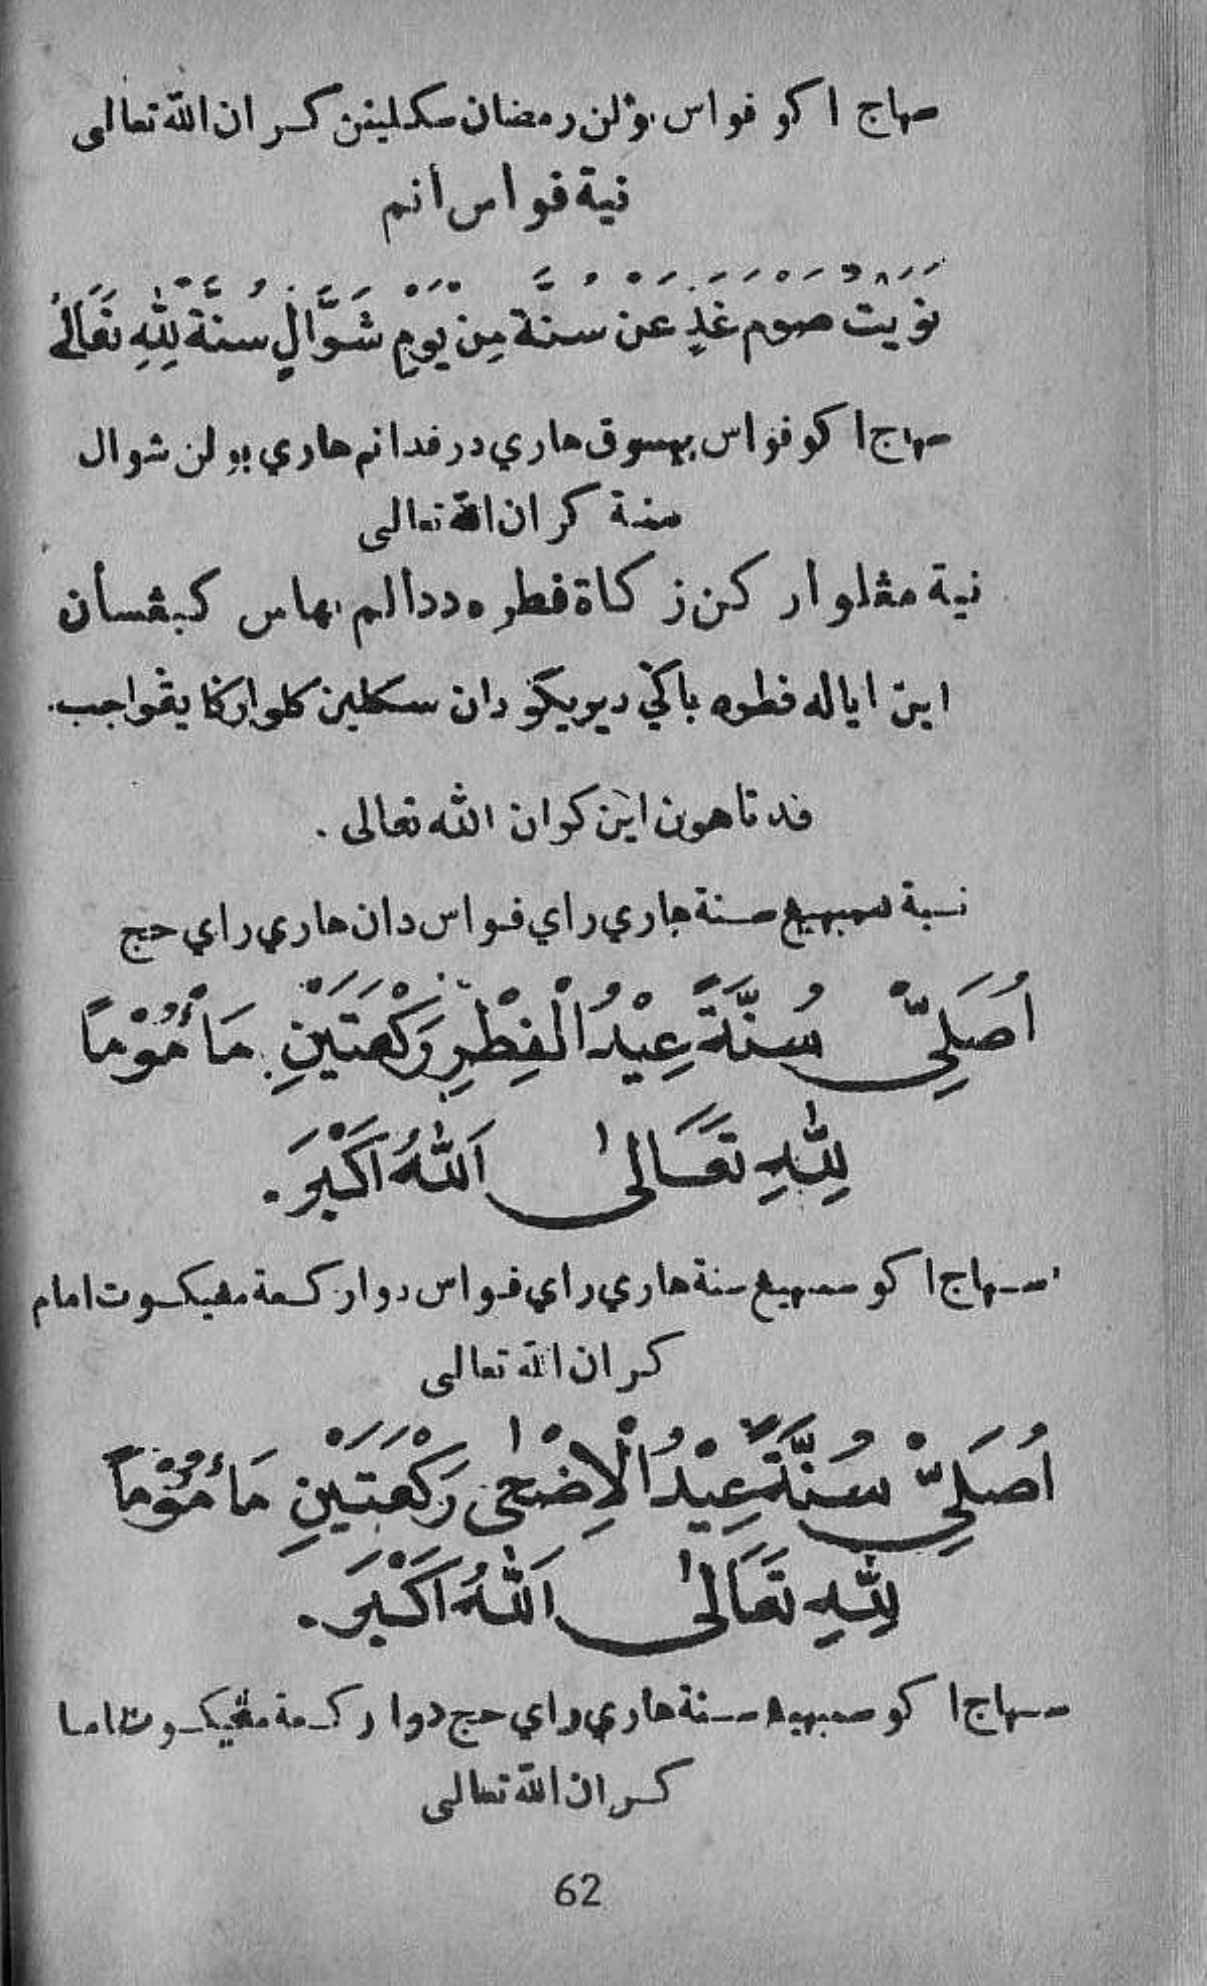 سهاج اكو فواس بولن رمضان سكلينن كران الله تعالى
نية فواس أنم
نَوَيْتُ صَوْمَ غَدٍ عَنْ سُنَّةٍ مِنْ يَوْمِ شَوَّالٍ سُنَّةً لِلّٰهِ تَعَالَى
سهاج اكو فواس بيسوق هاري درفد انم هاري بولن شوال
سنة كران الله تعالى
نية مڠلوار كن زكاة فطره ددالم بهاس كبڠسأن
اين اياله فطره باكي ديريكو دان سكلين كلواركا يڠ واجب.
فد تاهون اين كران الله تعالى.
نية سمبهيڠ سنة هاري راي فواس دان هاري راي حج
اُصَلِّىْ سُنَّةً عِيْدُ الْفِطْرِ رَكْعَتَيْنِ مَأْمُوْمًا
لِلّٰهِ تَعَالىٰ اَللّٰهُ اَكْبَرَ.
سهاج اكو سمبهيڠ سنة هاري راي فواس دوا ركعة مڠيكوت امام
كران الله تعالى
اُصَلِّىْ سُنَّةً عِيْدُ الْاِضْحٰى رَكْعَتَيْنِ مَأْمُوْمًا
لِلّٰهِ تَعَالىٰ اَللّٰهُ اَكْبَرَ.
سهاج اكو سمبهيڠ سنة هاري راي حج دوا ركعة مڠيكوت اما
كران الله تعالى
62